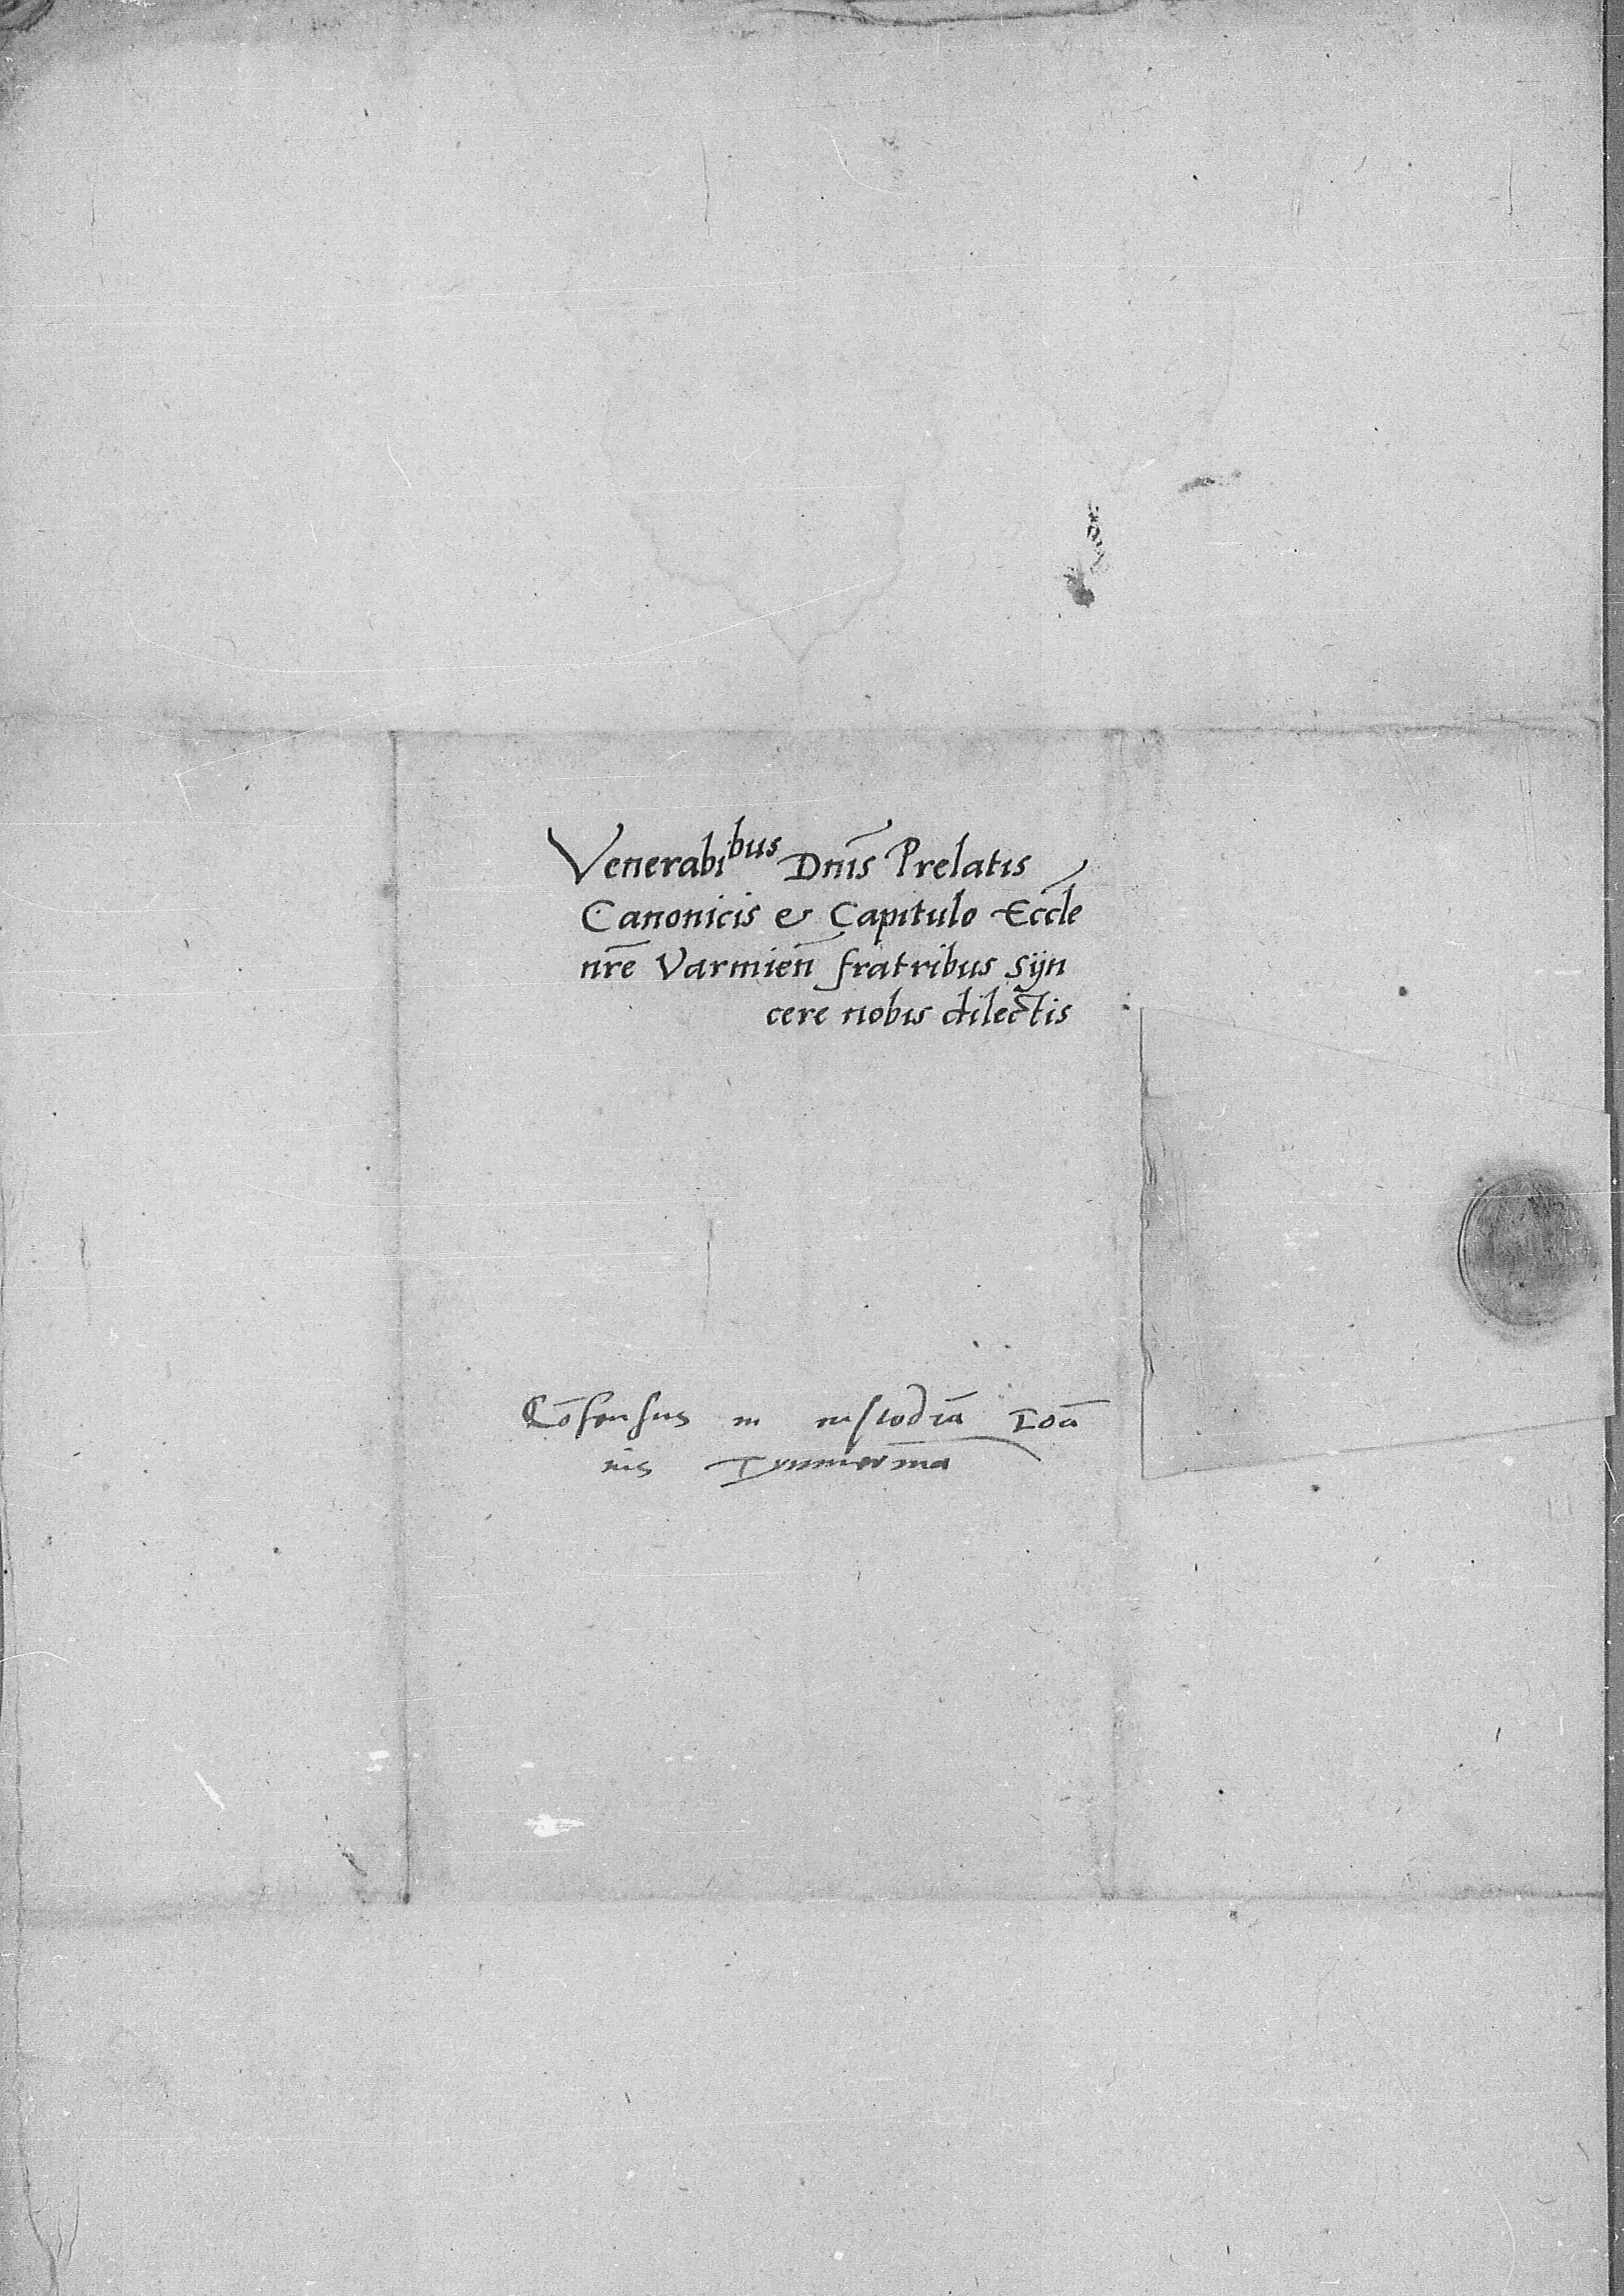 Venerabibus Dnīs Prelatis
Canonicis & Capitulo Eccle
nrē Varmien̄ fratribus syn
cere nobis dilectis
Cōsensus in custodiā Ioā
nis Tymmermā